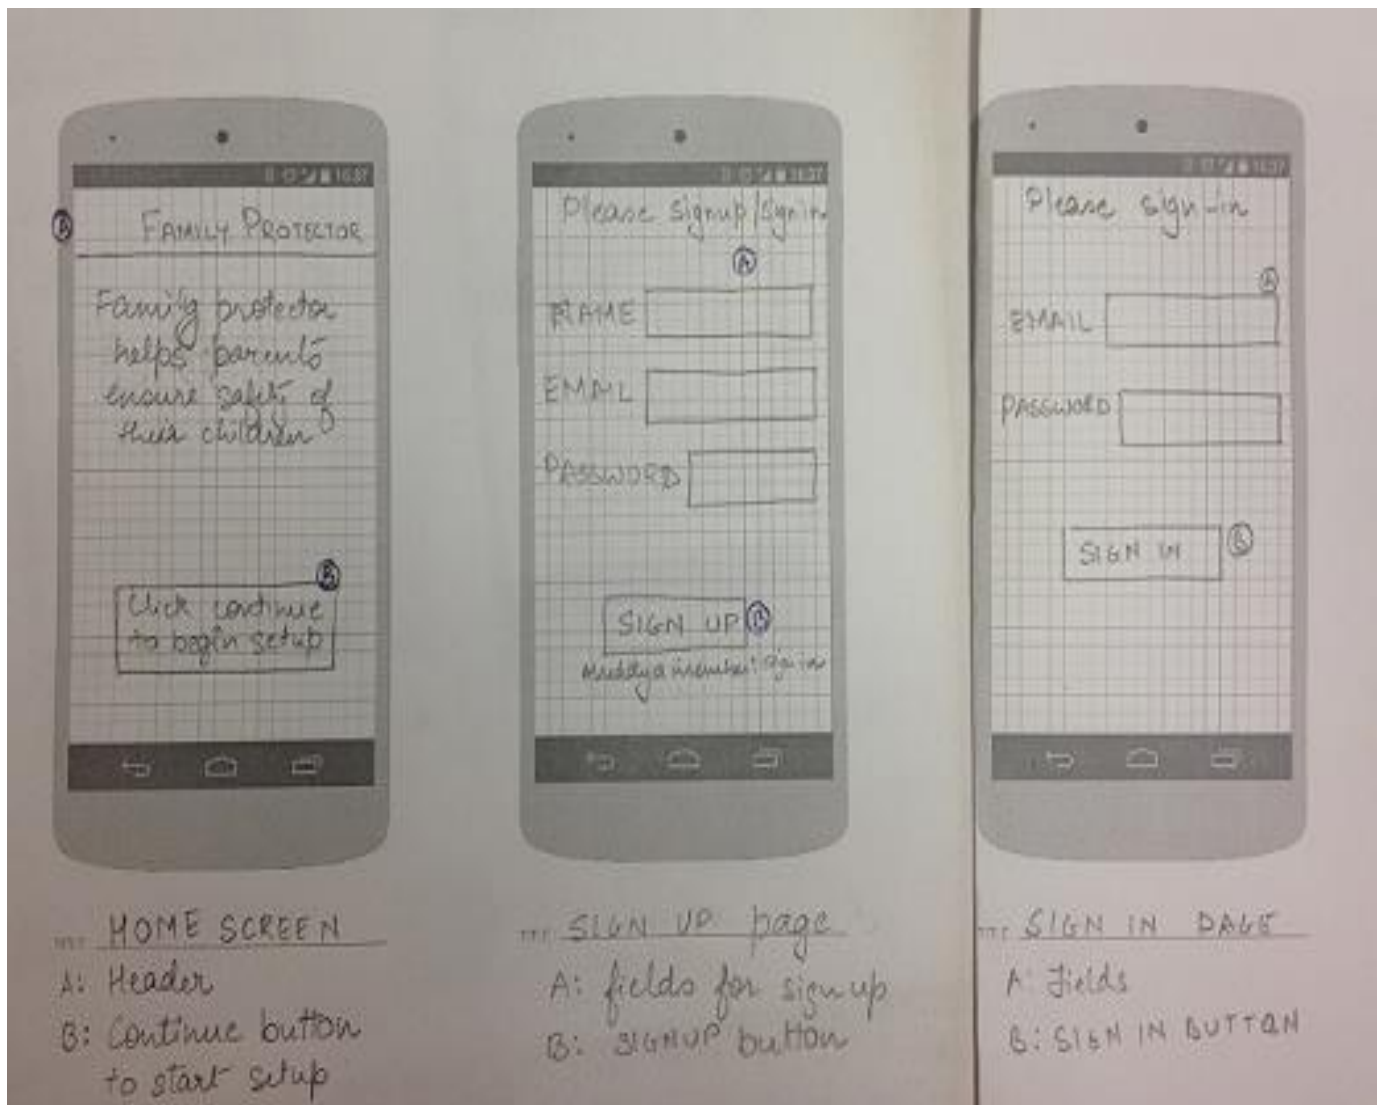 16:37
FAMILY PROTECTOR
Family protector
helps parents
ensure safety of
their children
B
Click continue
to begin setup
HOME SCREEN
A: Header
B: Continue button
to start setup
16:37
Please signup/sign in
A
NAME
EMAIL
PASSWORD
SIGN UP B
Already a member? sign in
SIGN UP page
A: fields for sign up
B: SIGNUP button
16:37
Please sign-in
A
EMAIL
PASSWORD
SIGN IN B
SIGN IN PAGE
A: Fields
B: SIGN IN BUTTON